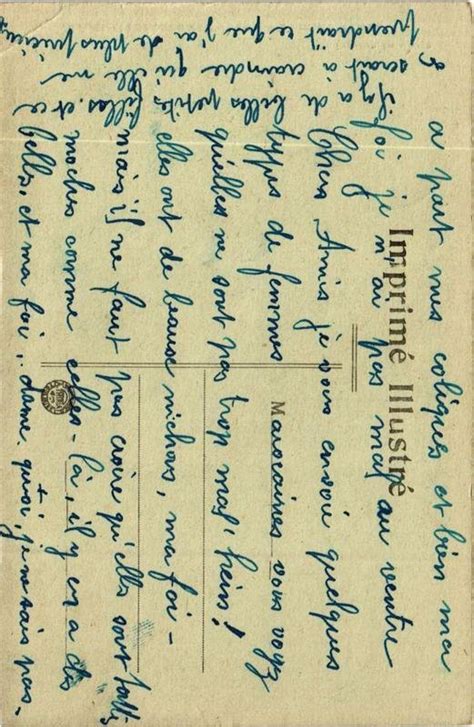 Imprimé Illustré
a part mes coliques et bien ma
foi je n'ai pas mal au ventre
Chers Amis je vous envoie quelques
types de femmes Marocaines vous voyez
qu'elles ne sont pas trop mal, hein!
elles ont de beaux nichons, ma foi -
mais il ne faut pas croire qu'elles sont toutes
moches comme celles-là, il y en a des
belles, et ma foi.. dame, quoi, je sais pas -
Il y a de belles petites filles. et ce
serait à craindre qu'elle me
prendrait ce que j'ai de plus précieux